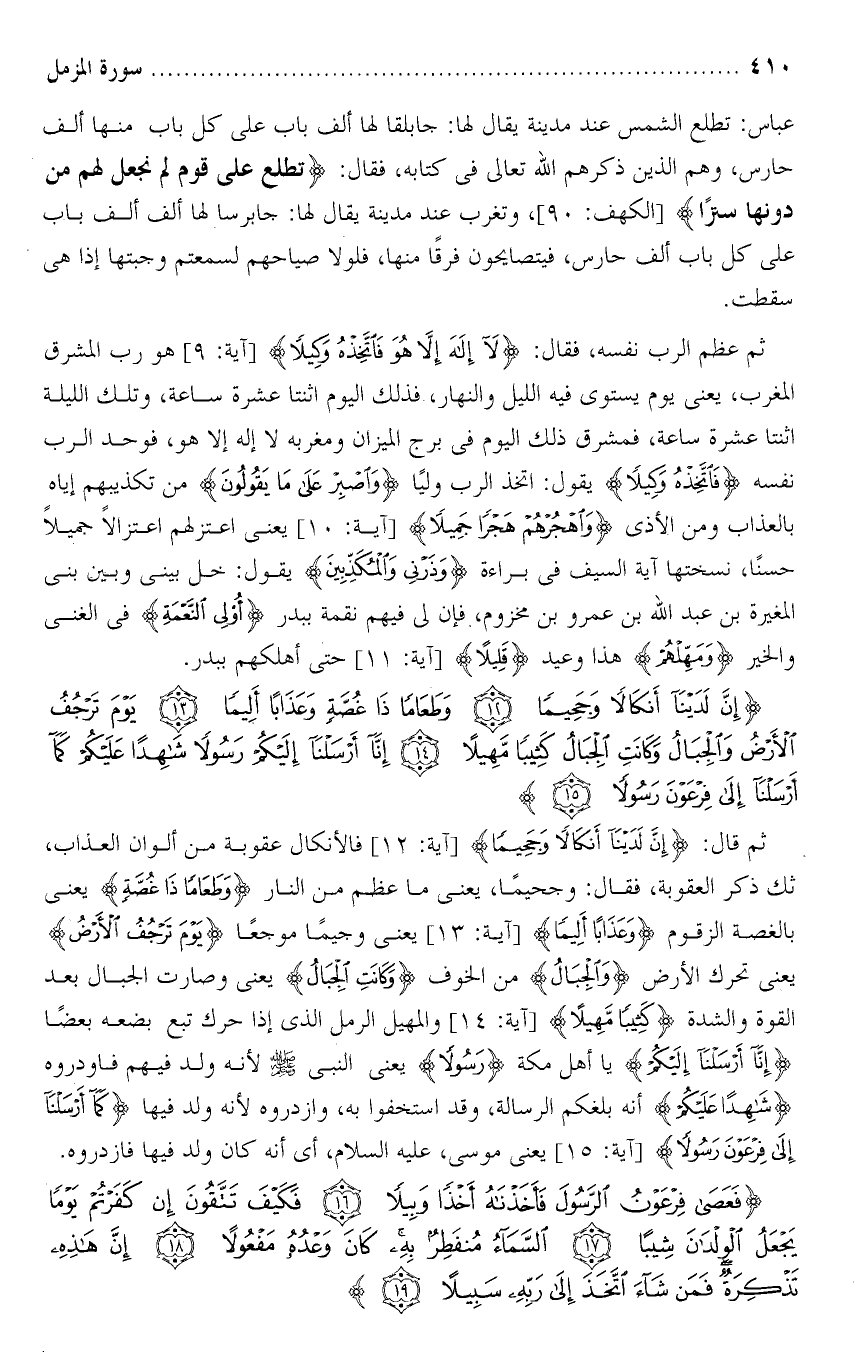 ٤١٠ ........................................................................ سورة المزمل
عباس: تطلع الشمس عند مدينة يقال لها: جابلقا لها ألف باب على كل باب منها ألف
حارس، وهم الذين ذكرهم الله تعالى فى كتابه، فقال: ﴿تطلع على قوم لم نجعل لهم من
دونها سترًا﴾ [الكهف: ٩٠]، وتغرب عند مدينة يقال لها: جابرسا لها ألف ألف باب
على كل باب ألف حارس، فيتصايحون فرقًا منها، فلولا صياحهم لسمعتم وجبتها إذا هى
سقطت.
ثم عظم الرب نفسه، فقال: ﴿لَآ إِلَٰهَ إِلَّا هُوَ فَٱتَّخِذۡهُ وَكِيلٗا﴾ [آية: ٩] هو رب المشرق
المغرب، يعنى يوم يستوى فيه الليل والنهار، فذلك اليوم اثنتا عشرة ساعة، وتلك الليلة
اثنتا عشرة ساعة، فمشرق ذلك اليوم فى برج الميزان ومغربه لا إله إلا هو، فوحد الرب
نفسه ﴿فَٱتَّخِذۡهُ وَكِيلٗا﴾ يقول: اتخذ الرب وليًا ﴿وَٱصۡبِرۡ عَلَىٰ مَا يَقُولُونَ﴾ من تكذيبهم إياه
بالعذاب ومن الأذى ﴿وَٱهۡجُرۡهُمۡ هَجۡرٗا جَمِيلٗا﴾ [آية: ١٠] يعنى اعتزلهم اعتزالاً جميلاً
حسنًا، نسختها آية السيف فى براءة ﴿وَذَرۡنِي وَٱلۡمُكَذِّبِينَ﴾ يقول: خل بينى وبين بنى
المغيرة بن عبد الله بن عمرو بن مخزوم، فإن لى فيهم نقمة ببدر ﴿أُوْلِي ٱلنَّعۡمَةِ﴾ فى الغنى
والخير ﴿وَمَهِّلۡهُمۡ﴾ هذا وعيد ﴿قَلِيلًا﴾ [آية: ١١] حتى أهلكهم ببدر.
﴿إِنَّ لَدَيۡنَآ أَنكَالٗا وَجَحِيمٗا ١٢ وَطَعَامٗا ذَا غُصَّةٖ وَعَذَابًا أَلِيمٗا ١٣ يَوۡمَ تَرۡجُفُ
ٱلۡأَرۡضُ وَٱلۡجِبَالُ وَكَانَتِ ٱلۡجِبَالُ كَثِيبٗا مَّهِيلًا ١٤ إِنَّآ أَرۡسَلۡنَآ إِلَيۡكُمۡ رَسُولٗا شَٰهِدًا عَلَيۡكُمۡ كَمَآ
أَرۡسَلۡنَآ إِلَىٰ فِرۡعَوۡنَ رَسُولٗا ١٥ ﴾
ثم قال: ﴿إِنَّ لَدَيۡنَآ أَنكَالٗا وَجَحِيمٗا﴾ [آية: ١٢] فالأنكال عقوبة من ألوان العذاب،
ثك ذكر العقوبة، فقال: وجحيمًا، يعنى ما عظم من النار ﴿وَطَعَامٗا ذَا غُصَّةٖ﴾ يعنى
بالغصة الزقوم ﴿وَعَذَابًا أَلِيمٗا﴾ [آية: ١٣] يعنى وجيمًا موجعًا ﴿يَوۡمَ تَرۡجُفُ ٱلۡأَرۡضُ﴾
يعنى تحرك الأرض ﴿وَٱلۡجِبَالُ﴾ من الخوف ﴿وَكَانَتِ ٱلۡجِبَالُ﴾ يعنى وصارت الجبال بعد
القوة والشدة ﴿كَثِيبٗا مَّهِيلًا﴾ [آية: ١٤] والمهيل الرمل الذى إذا حرك تبع بضعه بعضًا
﴿إِنَّآ أَرۡسَلۡنَآ إِلَيۡكُمۡ﴾ يا أهل مكة ﴿رَسُولٗا﴾ يعنى النبى ﷺ لأنه ولد فيهم فاودروه
﴿شَٰهِدًا عَلَيۡكُمۡ﴾ أنه بلغكم الرسالة، وقد استخفوا به، وازدروه لأنه ولد فيها ﴿كَمَآ أَرۡسَلۡنَآ
إِلَىٰ فِرۡعَوۡنَ رَسُولٗا﴾ [آية: ١٥] يعنى موسى، عليه السلام، أى أنه كان ولد فيها فازدروه.
﴿فَعَصَىٰ فِرۡعَوۡنُ ٱلرَّسُولَ فَأَخَذۡنَٰهُ أَخۡذٗا وَبِيلٗا ١٦ فَكَيۡفَ تَتَّقُونَ إِن كَفَرۡتُمۡ يَوۡمٗا
يَجۡعَلُ ٱلۡوِلۡدَٰنَ شِيبًا ١٧ ٱلسَّمَآءُ مُنفَطِرُۢ بِهِۦۚ كَانَ وَعۡدُهُۥ مَفۡعُولًا ١٨ إِنَّ هَٰذِهِۦ
تَذۡكِرَةٞۖ فَمَن شَآءَ ٱتَّخَذَ إِلَىٰ رَبِّهِۦ سَبِيلًا ١٩ ﴾